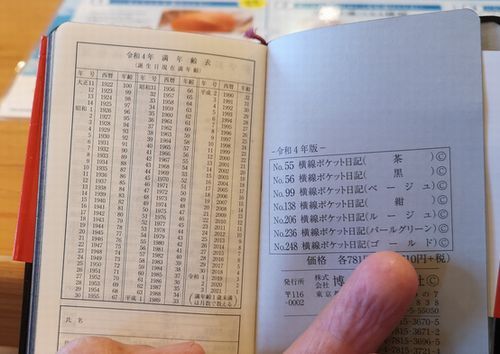 令和4年 満年齢表
(誕生日現在満年齢)
年号 西暦 年齢 年号 西暦 年齢 年号 西暦 年齢
大正11 1922 100 昭和31 1956 66 平成2 1990 32
12 1923 99 32 1957 65 3 1991 31
13 1924 98 33 1958 64 4 1992 30
14 1925 97 34 1959 63 5 1993 29
昭和1 1926 96 35 1960 62 6 1994 28
2 1927 95 36 1961 61 7 1995 27
3 1928 94 37 1962 60 8 1996 26
4 1929 93 38 1963 59 9 1997 25
5 1930 92 39 1964 58 10 1998 24
6 1931 91 40 1965 57 11 1999 23
7 1932 90 41 1966 56 12 2000 22
8 1933 89 42 1967 55 13 2001 21
9 1934 88 43 1968 54 14 2002 20
10 1935 87 44 1969 53 15 2003 19
11 1936 86 45 1970 52 16 2004 18
12 1937 85 46 1971 51 17 2005 17
13 1938 84 47 1972 50 18 2006 16
14 1939 83 48 1973 49 19 2007 15
15 1940 82 49 1974 48 20 2008 14
16 1941 81 50 1975 47 21 2009 13
17 1942 80 51 1976 46 22 2010 12
18 1943 79 52 1977 45 23 2011 11
19 1944 78 53 1978 44 24 2012 10
20 1945 77 54 1979 43 25 2013 9
21 1946 76 55 1980 42 26 2014 8
22 1947 75 56 1981 41 27 2015 7
23 1948 74 57 1982 40 28 2016 6
24 1949 73 58 1983 39 29 2017 5
25 1950 72 59 1984 38 30 2018 4
26 1951 71 60 1985 37 令和1 2019 3
27 1952 70 61 1986 36 2 2020 2
28 1953 69 62 1987 35 3 2021 1
29 1954 68 63 1988 34 (満年齢1歳未満
30 1955 67 平成1 1989 33 は月数で数える)
氏名
-令和4年版-
No.55 横線ポケット日記(茶)Ⓒ
No.56 横線ポケット日記(黒)Ⓒ
No.99 横線ポケット日記(ベージュ)Ⓒ
No.138 横線ポケット日記(紺)Ⓒ
No.206 横線ポケット日記(ルージュ)Ⓒ
No.236 横線ポケット日記(パールグリーン)Ⓒ
No.248 横線ポケット日記(ゴールド)Ⓒ
価格 各781 10円+税)
発行所 株式会社 博 社Ⓒ
〒116-0002 東京 の7